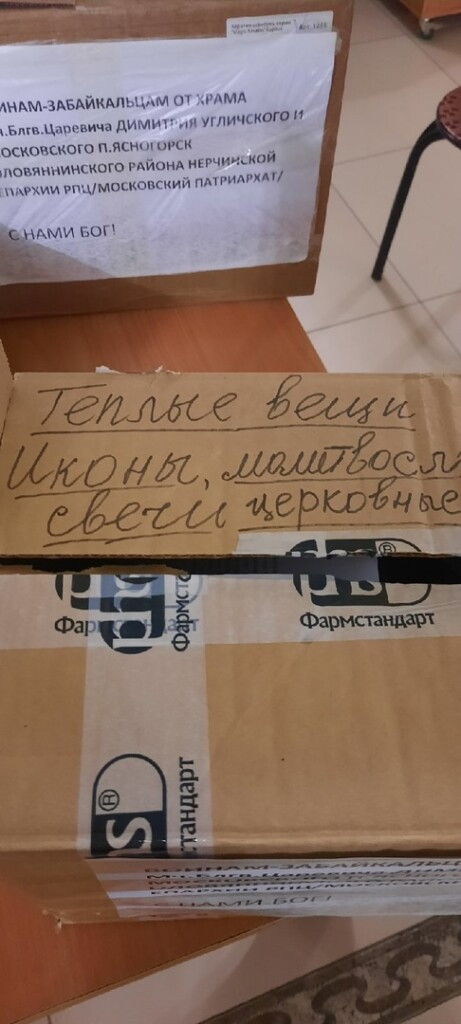 ИНАМ-ЗАБАЙКАЛЬЦАМ ОТ ХРАМА
ч.Блгв.Царевича ДИМИТРИЯ УГЛИЧСКОГО И
МОСКОВСКОГО П.ЯСНОГОРСК
ОЛОВЯННИНСКОГО РАЙОНА НЕРЧИНСКОЙ
ЕПАРХИИ РПЦ/МОСКОВСКИЙ ПАТРИАРХАТ/
С НАМИ БОГ!
Теплые вещи
Иконы, молитвосл
свечи церковные
Фармстандарт
Фармстандарт
стандарт
ВОИНАМ-ЗАБАЙКАЛЬЦ
М-ч.Блгв.Царевича
ЕПАРХИИ РПЦ/МОСКОВСКИ
С НАМИ БОГ!